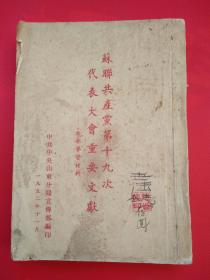 蘇聯共產黨第十九次
代表大會重要文獻
中共中央山東分局宣傳部編印
一九五二年十一月